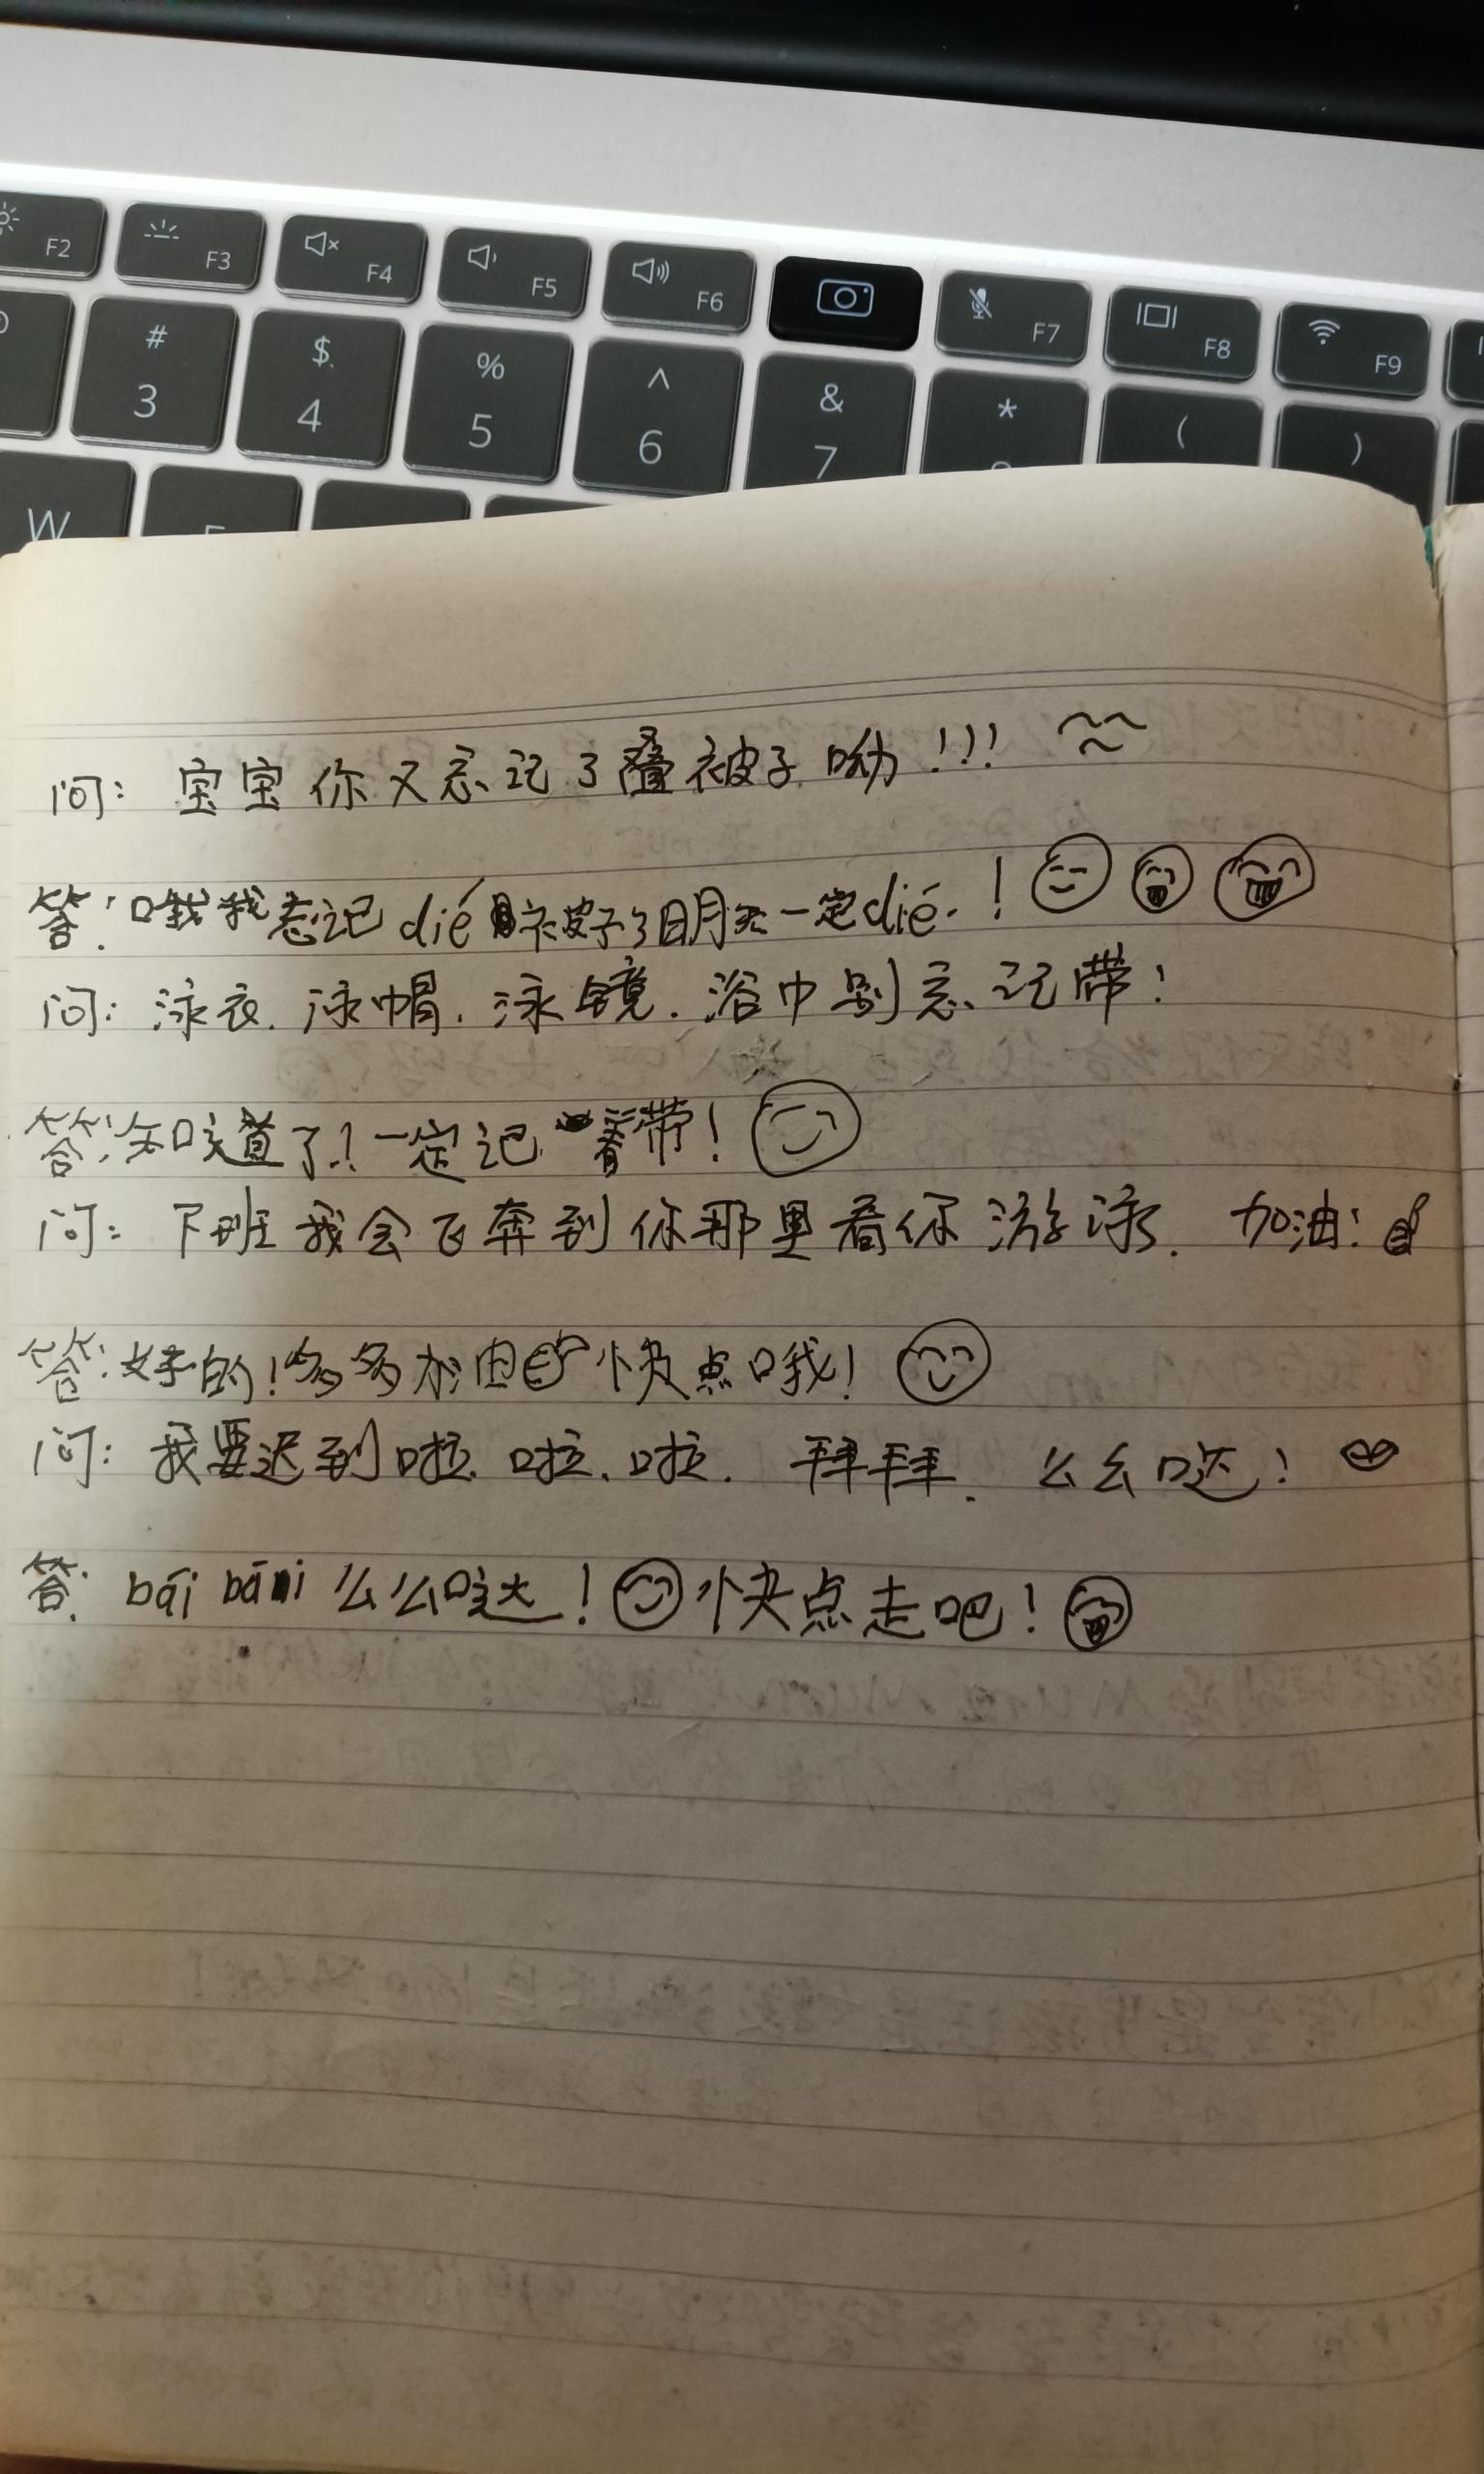 F2 F3 F4 F5 F6 F7 F8 F9
# $ % ^ & * ( )
3 4 5 6 7
W
问: 宝宝你又忘记了叠被子呦!!!
答:哦我忘记dié被子了明天一定dié.!
问: 泳衣. 泳帽. 泳镜. 浴巾别忘记带!
答:知道了!一定记着带!
问: 下班我会飞奔到你那里看你游泳. 加油!
答:好的!多多加油快点哦!
问: 我要迟到啦.啦.啦. 拜拜. 么么哒!
答: bái bái 么么哒!快点走吧!